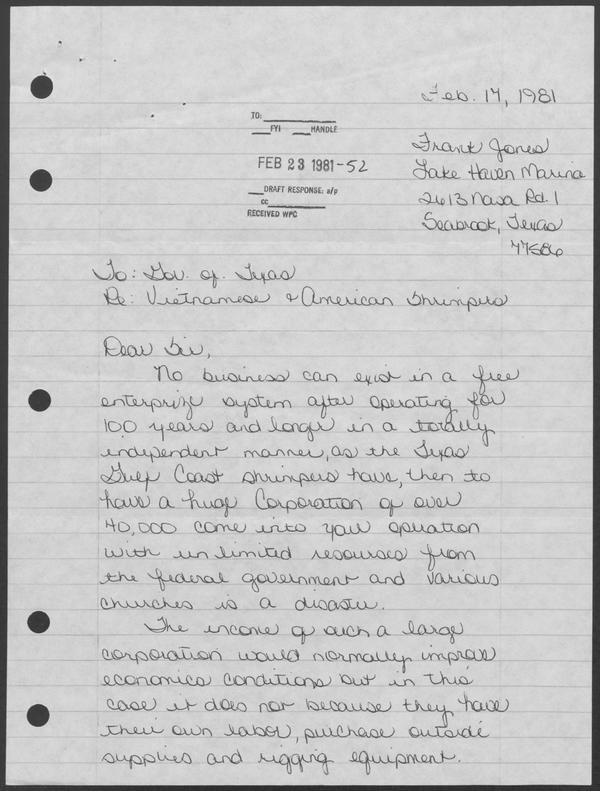 Feb. 17, 1981
TO:
FYI HANDLE
FEB 23 1981-52
DRAFT RESPONSE: a/p
cc
RECEIVED WPC
Frank Jones
Lake Haven Marina
2613 Nasa Rd. 1
Seabrook, Texas
77586
To: Gov. of Texas
Re: Vietnamese & American Shrimpers
Dear Sir,
No business can exist in a free
enterprize system after operating for
100 years and longer in a totally
independent manner, as the Texas
Gulf Coast shrimpers have, then to
have a huge Corporation of over
40,000 come into your operation
with unlimited resourses from
the federal government and various
churches is a disaster.
The income of such a large
corporation would normally improve
economics conditions but in this
case it does not because they have
their own labor, purchase outside
supplies and rigging equipment.